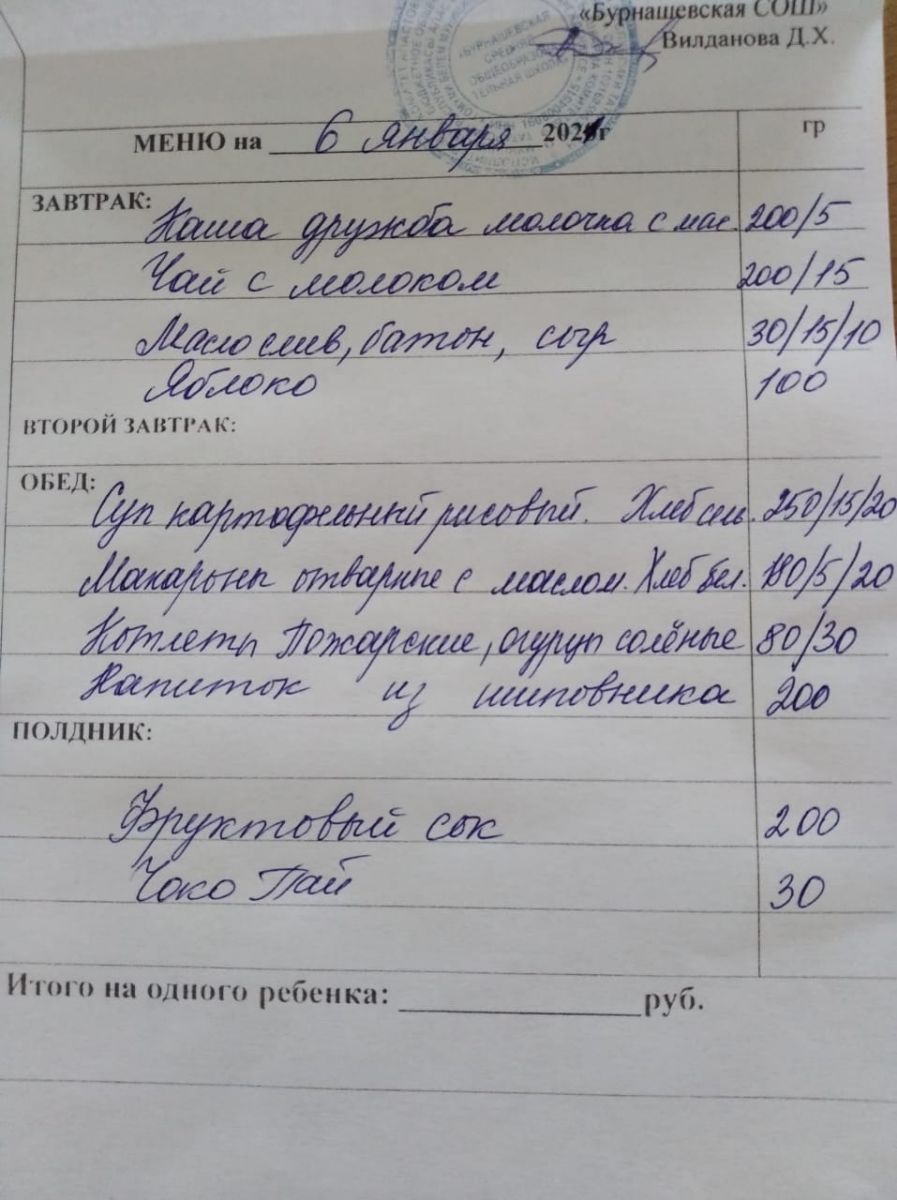 «Бурнашевская СОШ»
Вилданова Д.Х.
«БУРНАШЕВСКАЯ
СРЕДНЯЯ
ОБЩЕОБРАЗОВА
ТЕЛЬНАЯ ШКОЛА»
МЕНЮ на 6 января 2021г гр
ЗАВТРАК:
Каша дружба молочна с мас. 200/5
Чай с молоком 200/15
Масло слив, батон, сыр 30/15/10
Яблоко 100
ВТОРОЙ ЗАВТРАК:
ОБЕД:
Суп картофельный рисовый. Хлеб сель. 250/15/20
Макароны отварные с маслом. Хлеб бел. 180/5/20
Котлеты Пожарские, огурцы солёные 80/30
Напиток из шиповника 200
ПОЛДНИК:
Фруктовый сок 200
Чоко Пай 30
Итого на одного ребенка: ____________ руб.